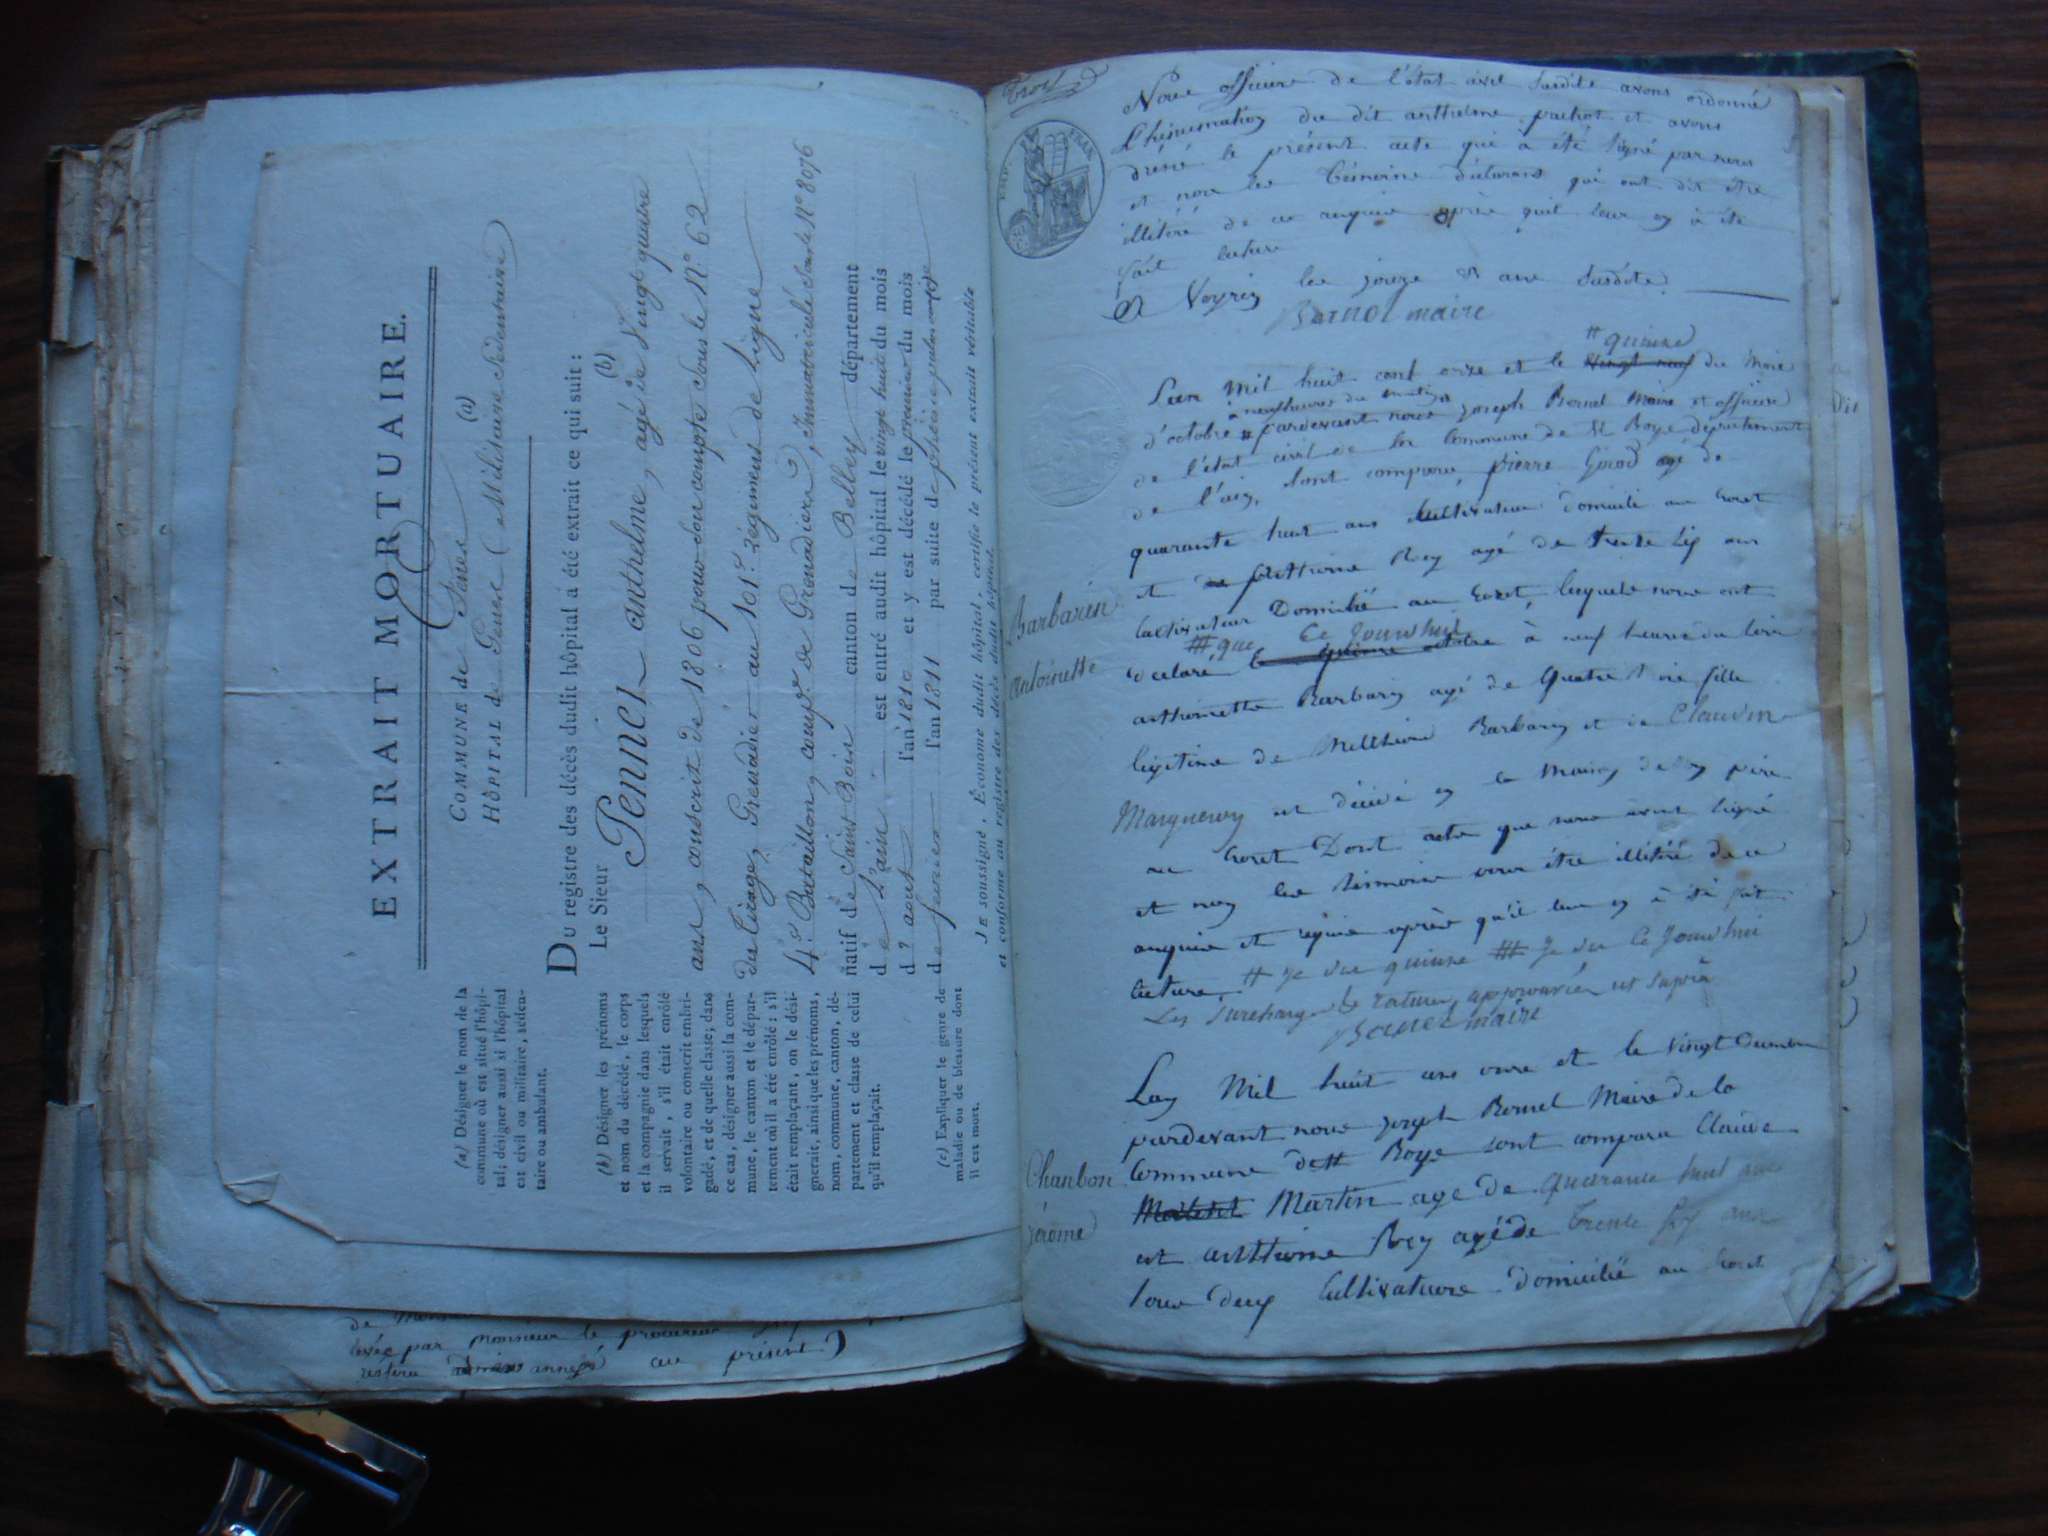 EXTRAIT MORTUAIRE.
COMMUNE de Gènes (a)
HÔPITAL de Gènes (Militaire Sédentaire)
Du registre des décès dudit hôpital a été extrait ce qui suit :
Le Sieur Pennet anthelme, agé de Vingt quatre (b)
ans, conscrit de 1806 pour son compte sous le N.° 62
du tirage, Grenadier au 101.e regiment de ligne
4.e Bataillon, comp.e de Grenadiers, Immatriculé sous le N° 8076
natif de Saint Bois canton de Belley département
de L'ain est entré audit hôpital le vingt huit du mois
d'aout l'an 1810 et y est décédé le premier du mois
de fevrier l'an 1811 par suite de phtisie pulmonaire
JE soussigné, Économe dudit hôpital, certifie le présent extrait véritable
et conforme au registre des décès dudit hôpital.
(a) Désigner le nom de la
commune où est situé l'hôpi-
tal; désigner aussi si l'hôpital
est civil ou militaire, séden-
taire ou ambulant.
(b) Désigner les prénoms
et nom du décédé, le corps
et la compagnie dans lesquels
il servait, s'il était enrôlé
volontaire ou conscrit embri-
gadé, et de quelle classe; dans
ce cas, désigner aussi la com-
mune, le canton et le dépar-
tement où il a été enrôlé : s'il
était remplaçant, on le dési-
gnerait, ainsi que les prénoms,
nom, commune, canton, dé-
partement et classe de celui
qu'il remplaçait.
(c) Expliquer le genre de
maladie ou de blessure dont
il est mort.
par monsieur le procureur
annexé au présent
Trois
EMP. FRAN.
Nous officier de l'état civil susdite avons ordonné
L'hinumation du dit anthelme pachot et avons
dréssé le présent acte qui à été signé par nous
et non les témoins déclarans qui ont dit être
illitéré de ce enquis après quil leur en à été
fait lecture
A Voyrin les jours et ans susdits.
Bornet maire
# quinze
Lan mil huit cent onze et le vingt neuf du mois
à neuf heures du matin
d'octobre # pardevant nous joseph Bornet Maire et officier
de l'état civil de la Commune de St Boys département
de l'ain, sont comparu, pierre Girod agé de
quarante huit ans Cultivateur domicilié au Croret
et de Anthieme Rey agé de trente six ans
Cultivateur Domicilié au Croret, lesquels nous ont
### que Ce Jourdhui
declaré le quinze octobre à neuf heures du soir
Barbarin
Antoinette
anthoinette Barbarin agé de Quatre Mois fille
legitime de Melthiore Barbarin et de Claudine
Marguerey est décédé en la maison de son père
au Croret Dont acte que nous avons signé
et non les témoins pour être illitéré de ce
enquis et requis après qu'il leur en à été fait
lecture. # Je dis quinze ### Je dis Ce Jourdhui
Les surcharges & ratures approuvées ut suprà
Bornet maire
Lan Mil huit cens onze et le Vingt Du mois
pardevant nous joseph Bornet Maire de la
Commune de St Boys sont comparu Claude
Chanbon
Jérome
Martin age de quarante huit ans
et Anthieme Rey agé de trente six ans
tous deux Cultivateurs Domicilié au Croret